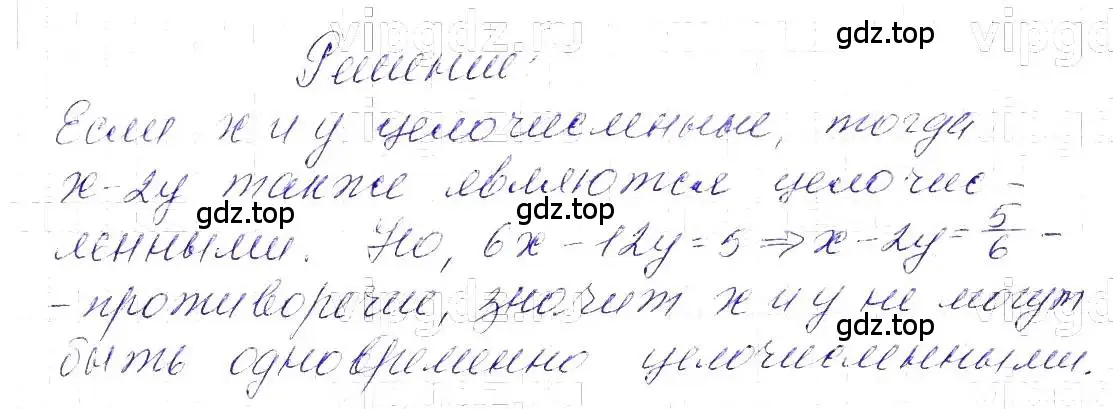 vipgdz.ru
gdz.top
vipgdz
Решение:
Если x и y целочисленные, тогда
x-2y также являются целочис-
gdz.top
gdz.top
ленными. Но, 6x-12y=5⇒x-2y=5/6-
-противоречие, значит x и y не могут
gdz.top
быть одновременно целочисленными.